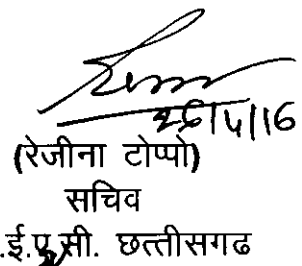 26/4/16
(रेजीना टोप्पो)
सचिव
.ई.ए.सी. छत्तीसगढ